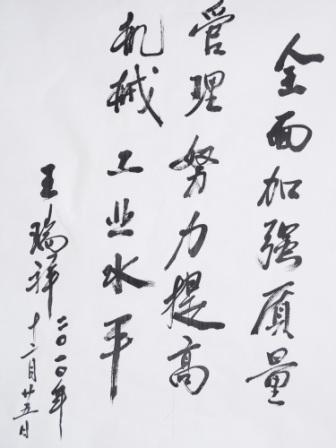 全面加强质量
管理努力提高
机械工业水平
王瑞祥
二〇一〇年
十二月廿五日